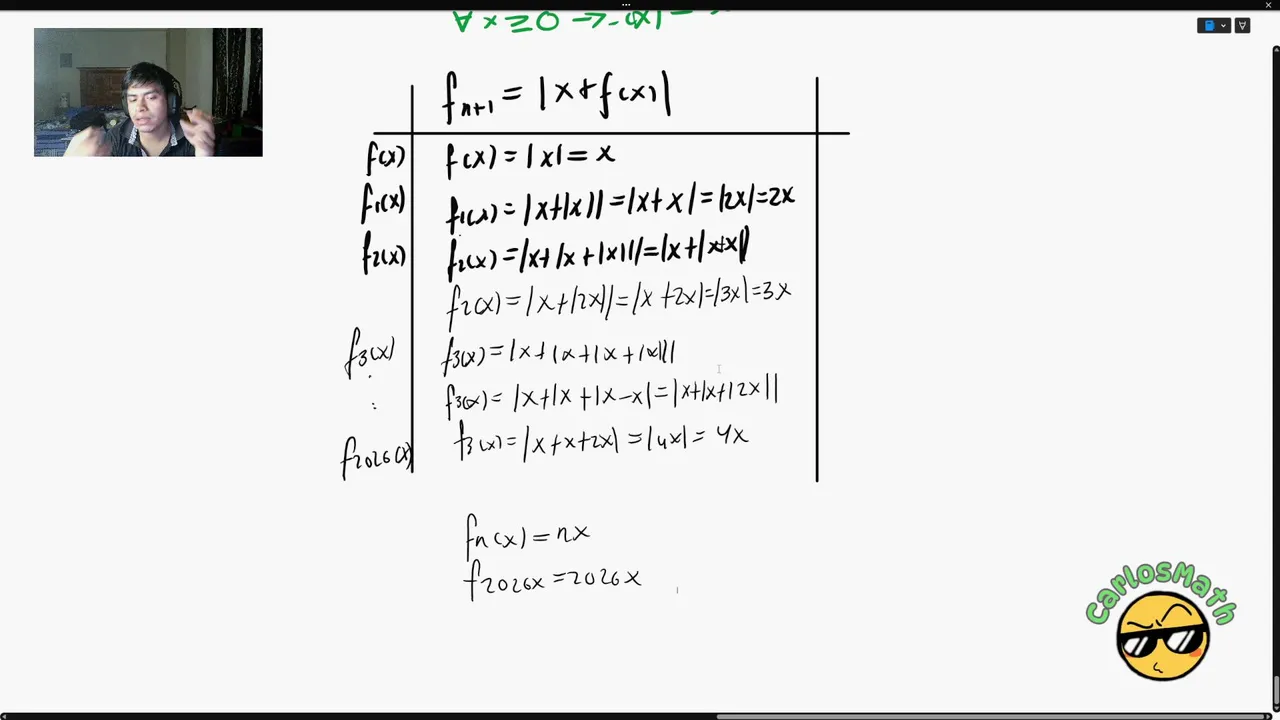 ∀ x ≥ 0 → |x| =
f_{n+1} = |x+f(x)|
f(x) f(x) = |x| = x
f_1(x) f_1(x) = |x+|x|| = |x+x| = |2x| = 2x
f_2(x) f_2(x) = |x+|x+|x||| = |x+|x+x||
f_2(x) = |x+|2x|| = |x+2x| = |3x| = 3x
f_3(x) f_3(x) = |x+|x+|x+|x|||
f_3(x) = |x+|x+|x-x| = |x+|x+|2x||
f_3(x) = |x+x+2x| = |4x| = 4x
f_{2026}(x)
f_n(x) = nx
f_{2026}x = 2026x
CarlosMath